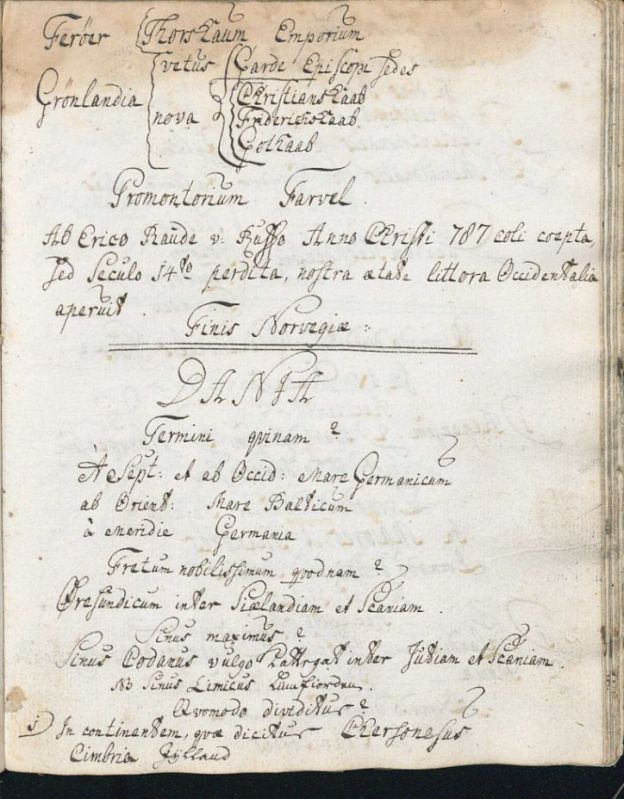 Feröer Thorshaum Emporium
vetus Garde Episcopi Sedes
Grönlandia
Christianshaab
nova Friderichshaab
Gothaab
Promontorium Farvel.
Ab Erico Raude v: Ruffo Anno Christi 787 coli coepta,
sed Seculo 14to perdita, nostra ætate littora Occidentalia
aperuit.
Finis Norvegiæ:
DANIA
Termini qvinam?
A Sept: et ab Occid: Mare Germanicum
ab Orient: Mare Balticum
à Meridie Germania
Fretum nobilissimum qvodnam?
Øresundicum inter Siælandiam et Scaniam.
Sinus maximus?
Sinus Codanus vulgo Kattegat inter Jutiam et Scaniam.
NB Sinus Limicus Limfiorden.
Qvomodo dividitur?
1) In continentem, qvæ dicitur Chersonesus
Cimbria Jylland